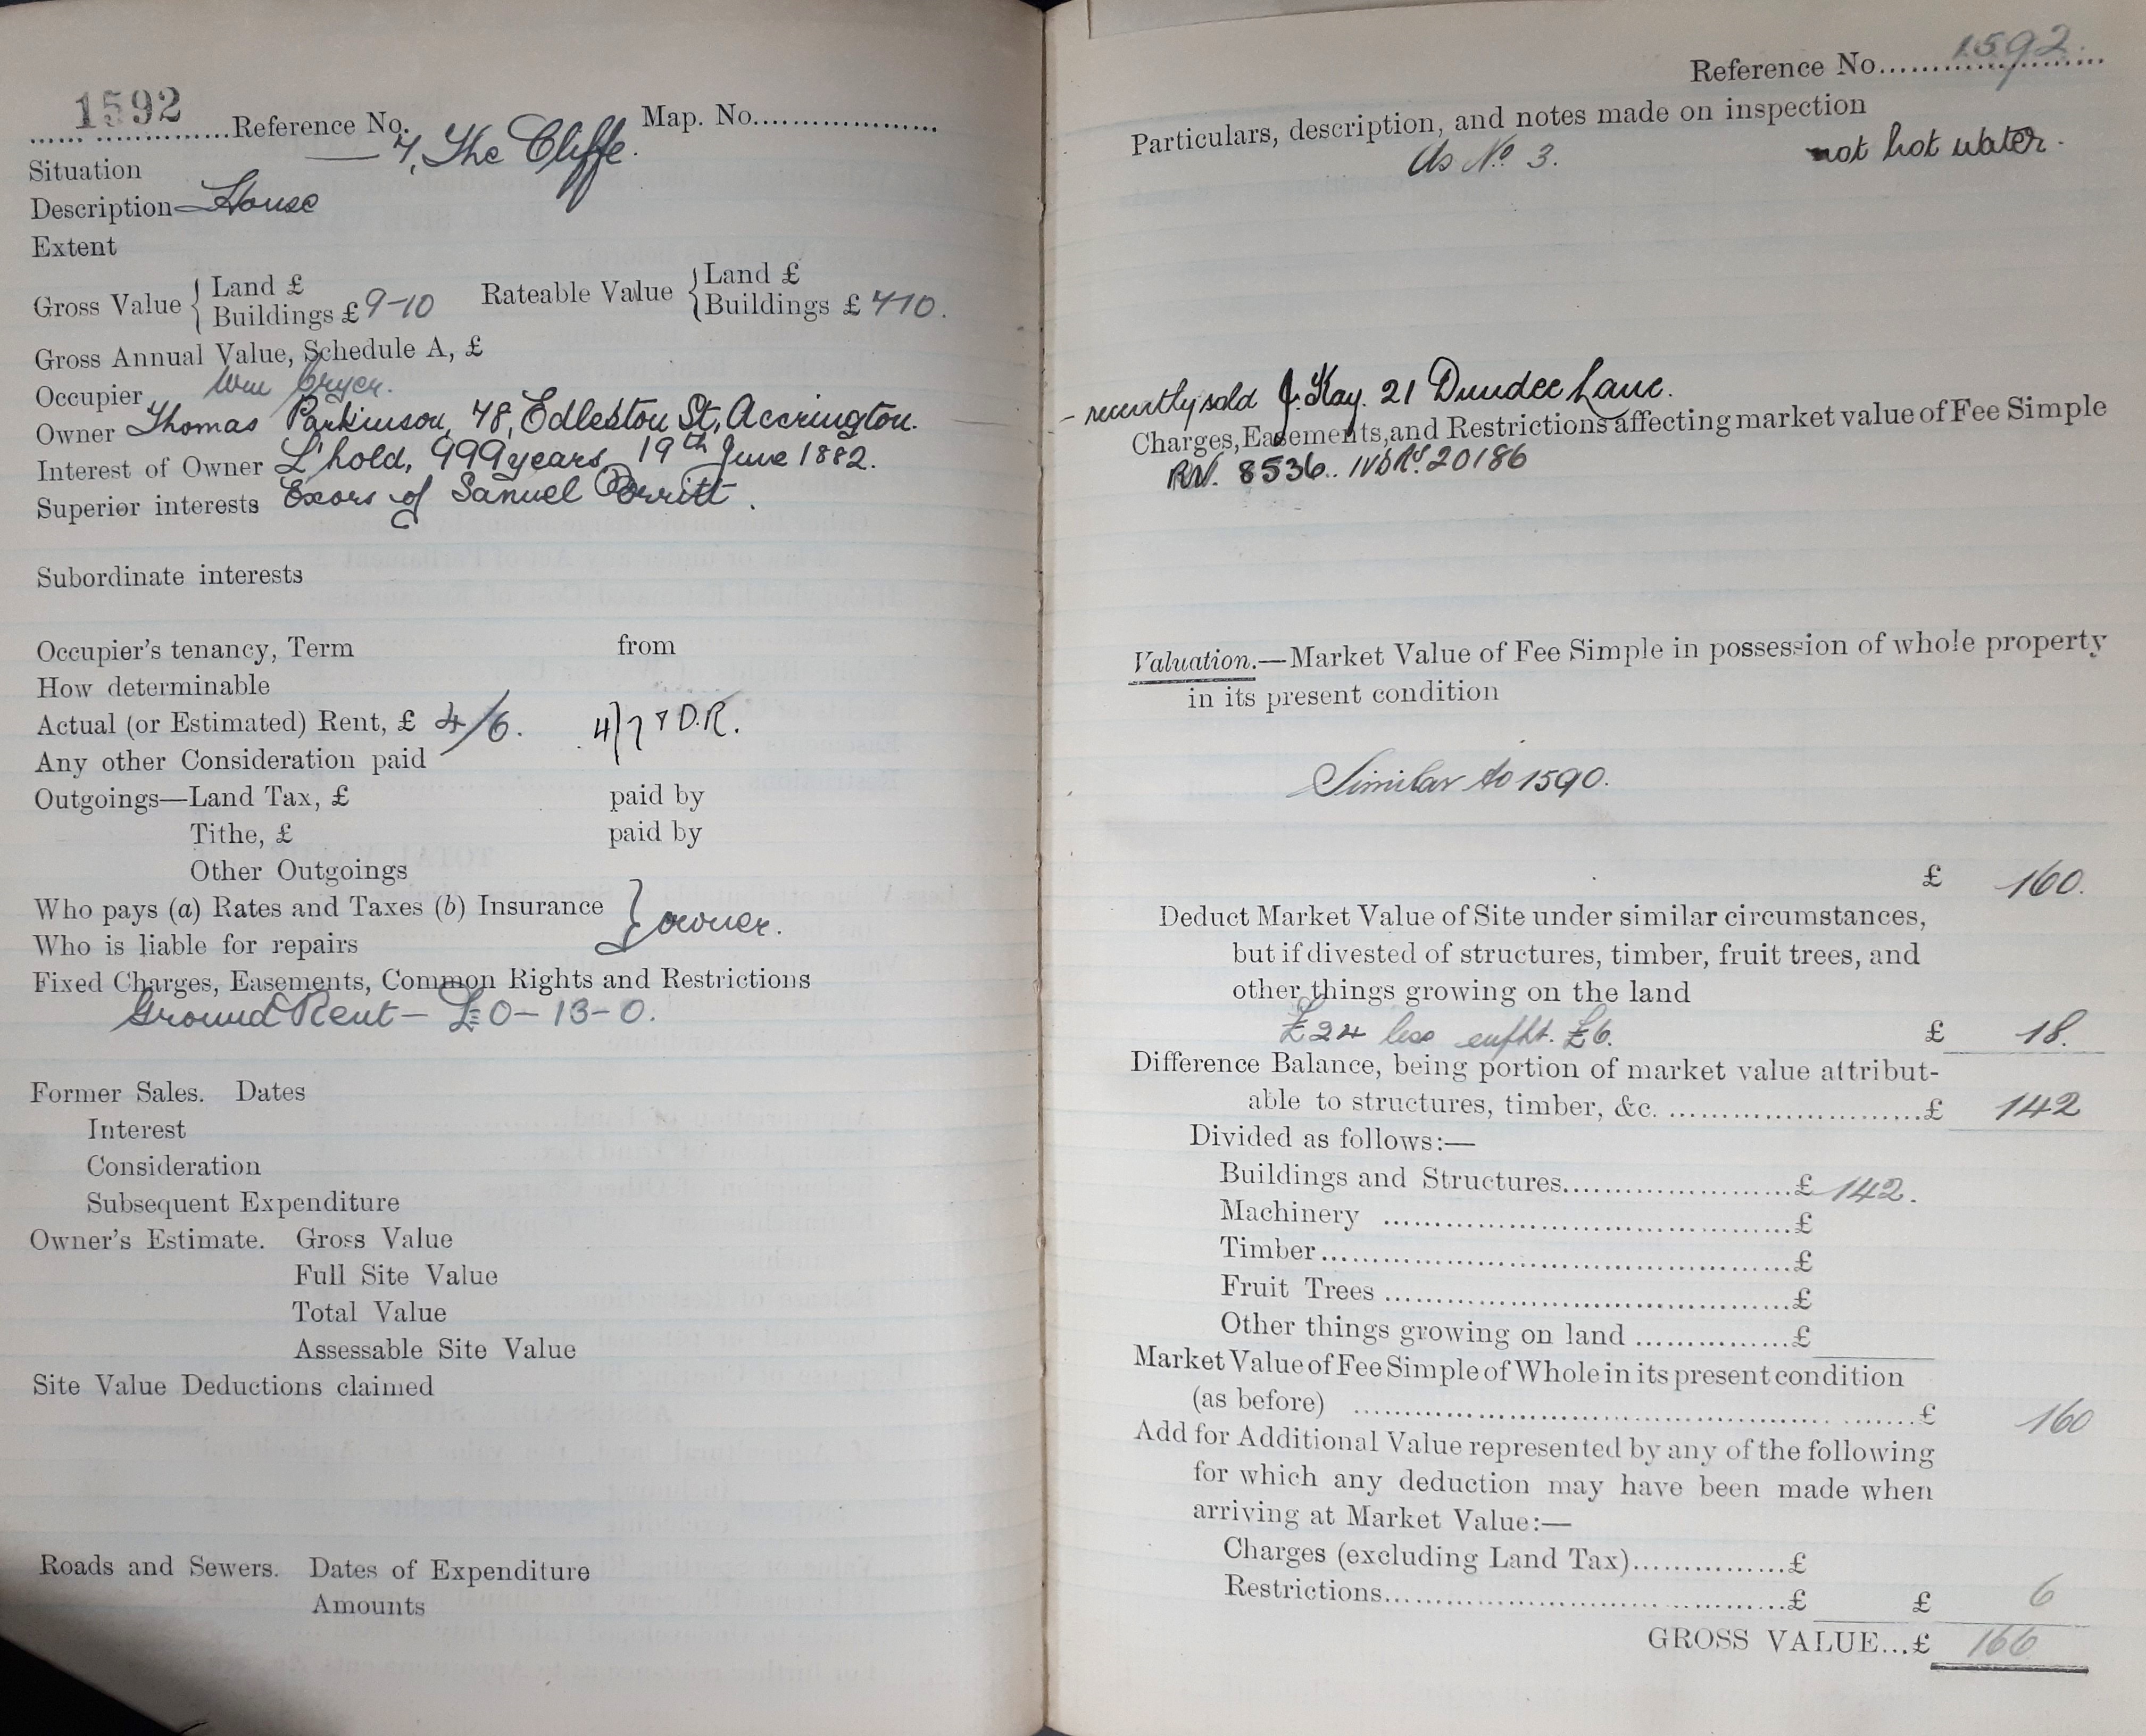 1592 Reference No. Map. No.
Situation 7, The Cliffe.
Description House
Extent
Gross Value { Land £ Rateable Value { Land £
Buildings £ 9-10 Buildings £ 7-10.
Gross Annual Value, Schedule A, £
Occupier Wm Cryer.
Owner Thomas Parkinson, 78, Edleston St, Accrington.
Interest of Owner L'hold, 999 years, 19th June 1882.
Superior interests Exors of Samuel Porritt.
Subordinate interests
Occupier's tenancy, Term from
How determinable
Actual (or Estimated) Rent, £ 4/6. 4/7 & D.R.
Any other Consideration paid
Outgoings—Land Tax, £ paid by
Tithe, £ paid by
Other Outgoings
Who pays (a) Rates and Taxes (b) Insurance } owner.
Who is liable for repairs
Fixed Charges, Easements, Common Rights and Restrictions
Ground Rent — £0-13-0.
Former Sales. Dates
Interest
Consideration
Subsequent Expenditure
Owner's Estimate. Gross Value
Full Site Value
Total Value
Assessable Site Value
Site Value Deductions claimed
Roads and Sewers. Dates of Expenditure
Amounts
Reference No. 1592.
Particulars, description, and notes made on inspection
As No. 3. not hot water.
- recently sold J. Kay. 21 Dundee Lane.
Charges, Easements, and Restrictions affecting market value of Fee Simple
8536.. 20186
Valuation.—Market Value of Fee Simple in possession of whole property
in its present condition
Similar to 1590.
£ 160.
Deduct Market Value of Site under similar circumstances,
but if divested of structures, timber, fruit trees, and
other things growing on the land
£24 less £6. £ 18.
Difference Balance, being portion of market value attribut-
able to structures, timber, &c. £ 142
Divided as follows:—
Buildings and Structures £ 142.
Machinery £
Timber £
Fruit Trees £
Other things growing on land £
Market Value of Fee Simple of Whole in its present condition
(as before) £ 160
Add for Additional Value represented by any of the following
for which any deduction may have been made when
arriving at Market Value:—
Charges (excluding Land Tax) £
Restrictions £ £ 6
GROSS VALUE...£ 166